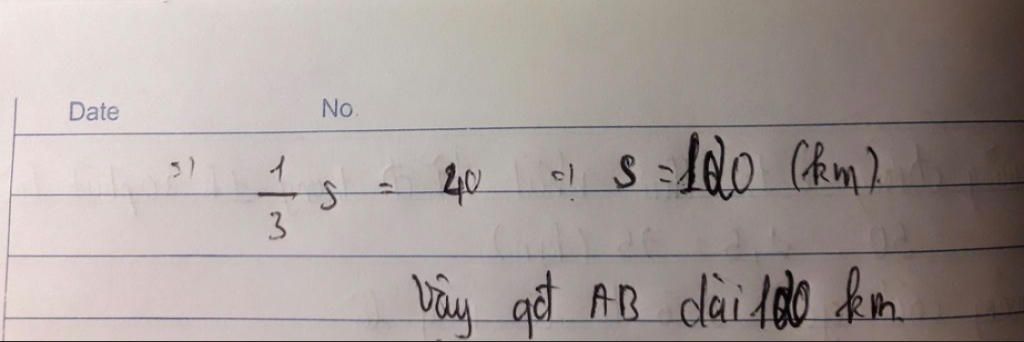 Date No.
=) 1/3 S = 40 =) S = 120 (km).
Vậy qđ AB dài 120 km